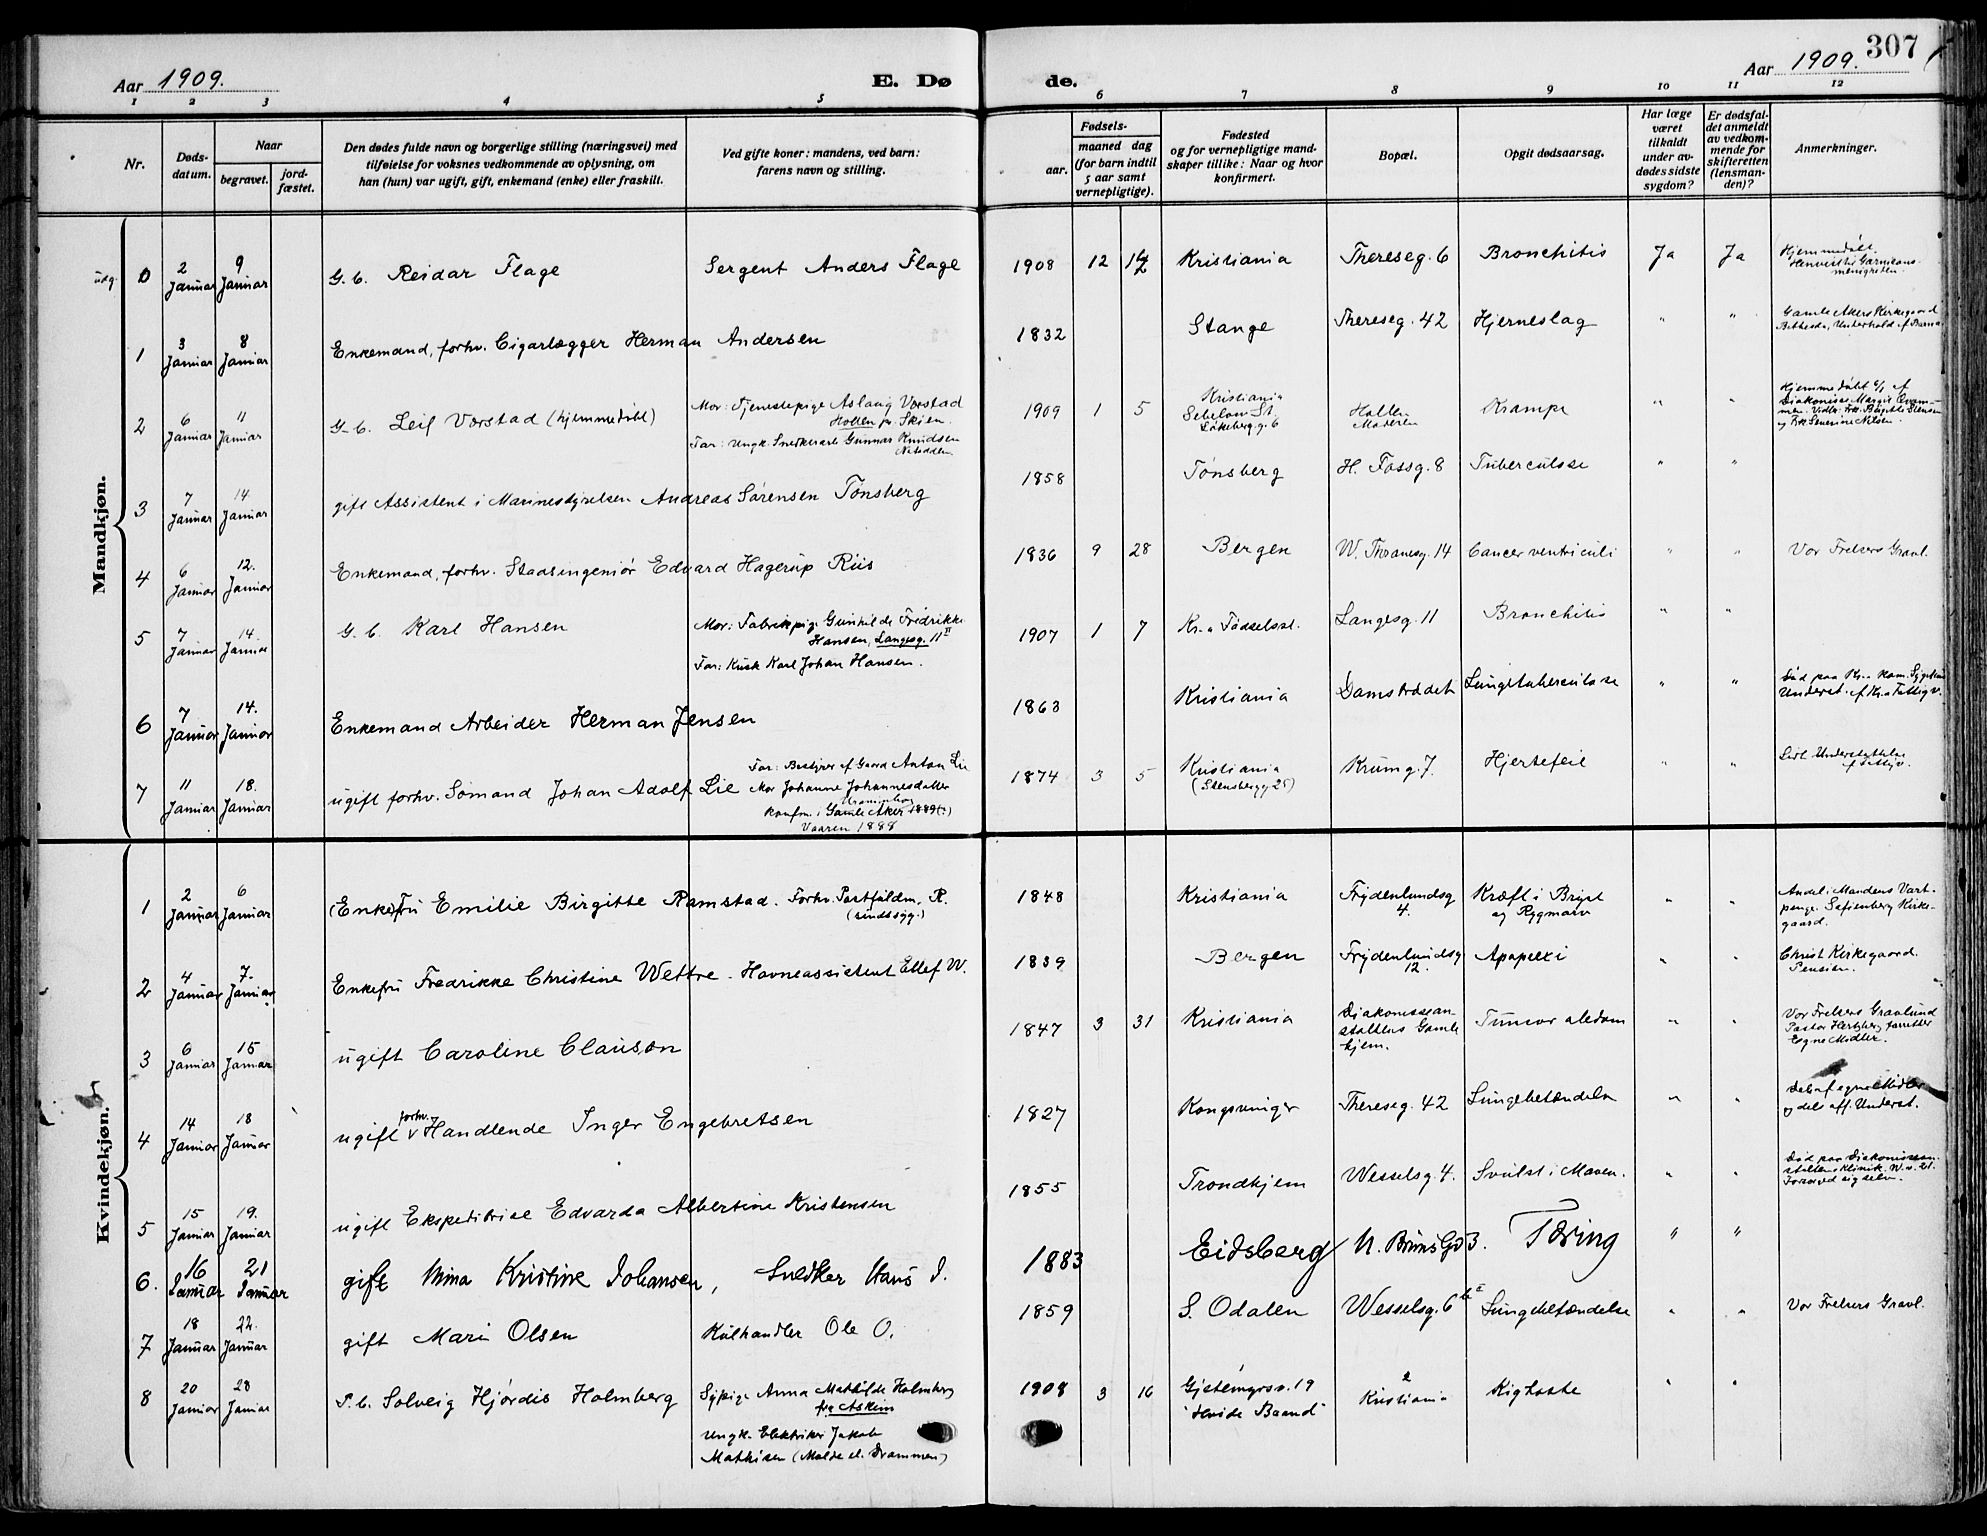 307
Aar 1909.
E. Dø
de.
Aar 1909.
1 2 3 4 5 6 7 8 9 10 11 12
Nr.
Døds-
datum.
Naar
begravet.
jord-
fæstet.
Den dødes fulde navn og borgerlige stilling (næringsvei) med
tilføielse for voksnes vedkommende av oplysning, om
han (hun) var ugift, gift, enkemand (enke) eller fraskilt.
Ved gifte koner: mandens, ved barn:
farens navn og stilling.
Fødsels-
aar.
maaned dag
(for barn indtil
5 aar samt
vernepligtige).
Fødested
og for vernepligtige mand-
skaper tillike: Naar og hvor
konfirmert.
Bopæl.
Opgit dødsaarsag.
Har læge
været
tilkaldt
under av-
dødes sidste
sygdom?
Er dødsfal-
det anmeldt
av vedkom-
mende for
skifteretten
(lensman-
den)?
Anmerkninger.
Mandkjøn.
udg. 0 2 Januar 9 Januar G. b. Reidar Flage Sergent Anders Flage 1908 12 Kristiania Thereseg. 6 Bronchitis Ja Ja Hjemmedøbt.
menigheten.
1 3 Januar 8 Januar Enkemand, forhv. Cigarlægger Herman Andersen 1832 Stange Thereseg. 42 Hjerneslag " " Gamle Akers Kirkegaard
Bethesda, Underhold af Børna
2 6 Januar 11 Januar G. b. Leif Vorstad (hjemmedøbt) Mor: Tjenestepige Aslaug Vorstad
Hollen pr. Skien.
Far: Ungk. Snedkerarb. Gunnar Knudsen
1909 1 5 Kristiania
Krampe " " Hjemmedøbt
Diakonisse Margit
og Frk Severine Nilsen.
3 7 Januar 14 Januar gift Assistent i Marinestyrelsen Andreas Sørensen Tønsberg 1858 Tønsberg H. Fossg. 8 Tuberculose " "
4 6 Januar 12. Januar Enkemand, forhv. Stadsingeniør Edvard Hagerup Riis 1836 9 28 Bergen W. Thranesg. 14 Cancer ventriculi " " Vor Frelsers Gravl.
5 7 Januar 14. Januar G. b. Karl Hansen Mor: Fabrikpige Gunhilde Fredrikke
Hansen, Langesg. 11 II
Far: Kusk Karl Johan Hansen.
1907 1 7 Kr.a Fødselsst. Langesg. 11 Bronchitis " "
6 7 Januar 14. Januar Enkemand Arbeider Herman Jensen 1863 Kristiania Damstrædet Lungetuberculose " " Død paa Kr.a Kom. Sygehus
Underst. af Kr.a Fattigv.
7 11 Januar 18. Januar ugift forhv. Sømand Johan Adolf Lie Far: Bestyrer af Gaard Anton Lie
Mor Johanne Johannesdatter
Konfm. i Gamle Aker 1889(?)
Vaaren 1888
1874 3 5 Kristiania
(Stensbergg 25)
Krumg. 7. Hjertefeil " " Lidt Understøttelse
af Fattigv.
Kvindekjøn.
1 2 Januar 6 Januar (Enke)fru Emilie Birgitte Ramstad. Forhv. Postfuldm. R.
(sindssyg.)
1848 Kristiania Frydenlundsg
4.
Kræft i Bryst
og Rygmarv
" " Andel i Mandens Vart-
penge. Sofienberg Kirke-
gaard.
2 4 Januar 7. Januar Enkefru Fredrikke Christine Wettre. Havneassistent Ellef W. 1839 Bergen Frydenlundsg
12.
Apoplexi " " Christ Kirkegaard.
Pension.
3 6 Januar 15 Januar ugift Caroline Clauson 1847 3 31 Kristiania Diakonissean-
staltens Gamle
hjem.
Tumor abdom " " Vor Frelsers Gravlund
Pastor Hertzberg forretter
Egne Midler.
4 14 Januar 18 Januar ugift forhv. Handlende Inger Engebretsen 1827 Kongsvinger Thereseg. 42 Lungebetændelse " " Dels af egne Midler
og dels off. Underst.
5 15 Januar 19. Januar ugift Ekspeditrice Edvarda Albertine Kristensen 1855 Trondhjem Wesselsg 4. Svulst i Maven. " " Død paa Diakonissean-
staltens Klinik.
6. 16 Januar 21 Januar gift Mina Kristine Johansen, Snedker Hans J. 1883 Eidsberg N. Brunsgd 3. Tæring " "
7 18 Januar 22. Januar gift Marie Olsen Kulhandler Ole O. 1859 S. Odalen Wesselsg. 6 Lungebetændelse " " Vor Frelsers Gravl.
8 20 Januar 28 Januar P. b. Solveig Hjørdis Holmberg Sypige Anna Mathilde Holmberg
fra Askim
Ungk. Elektriker Jakob
Mathisen (Molde el. Drammen)
1908 3 16
"Hvide Baand"
Kristiania
Kighoste " "